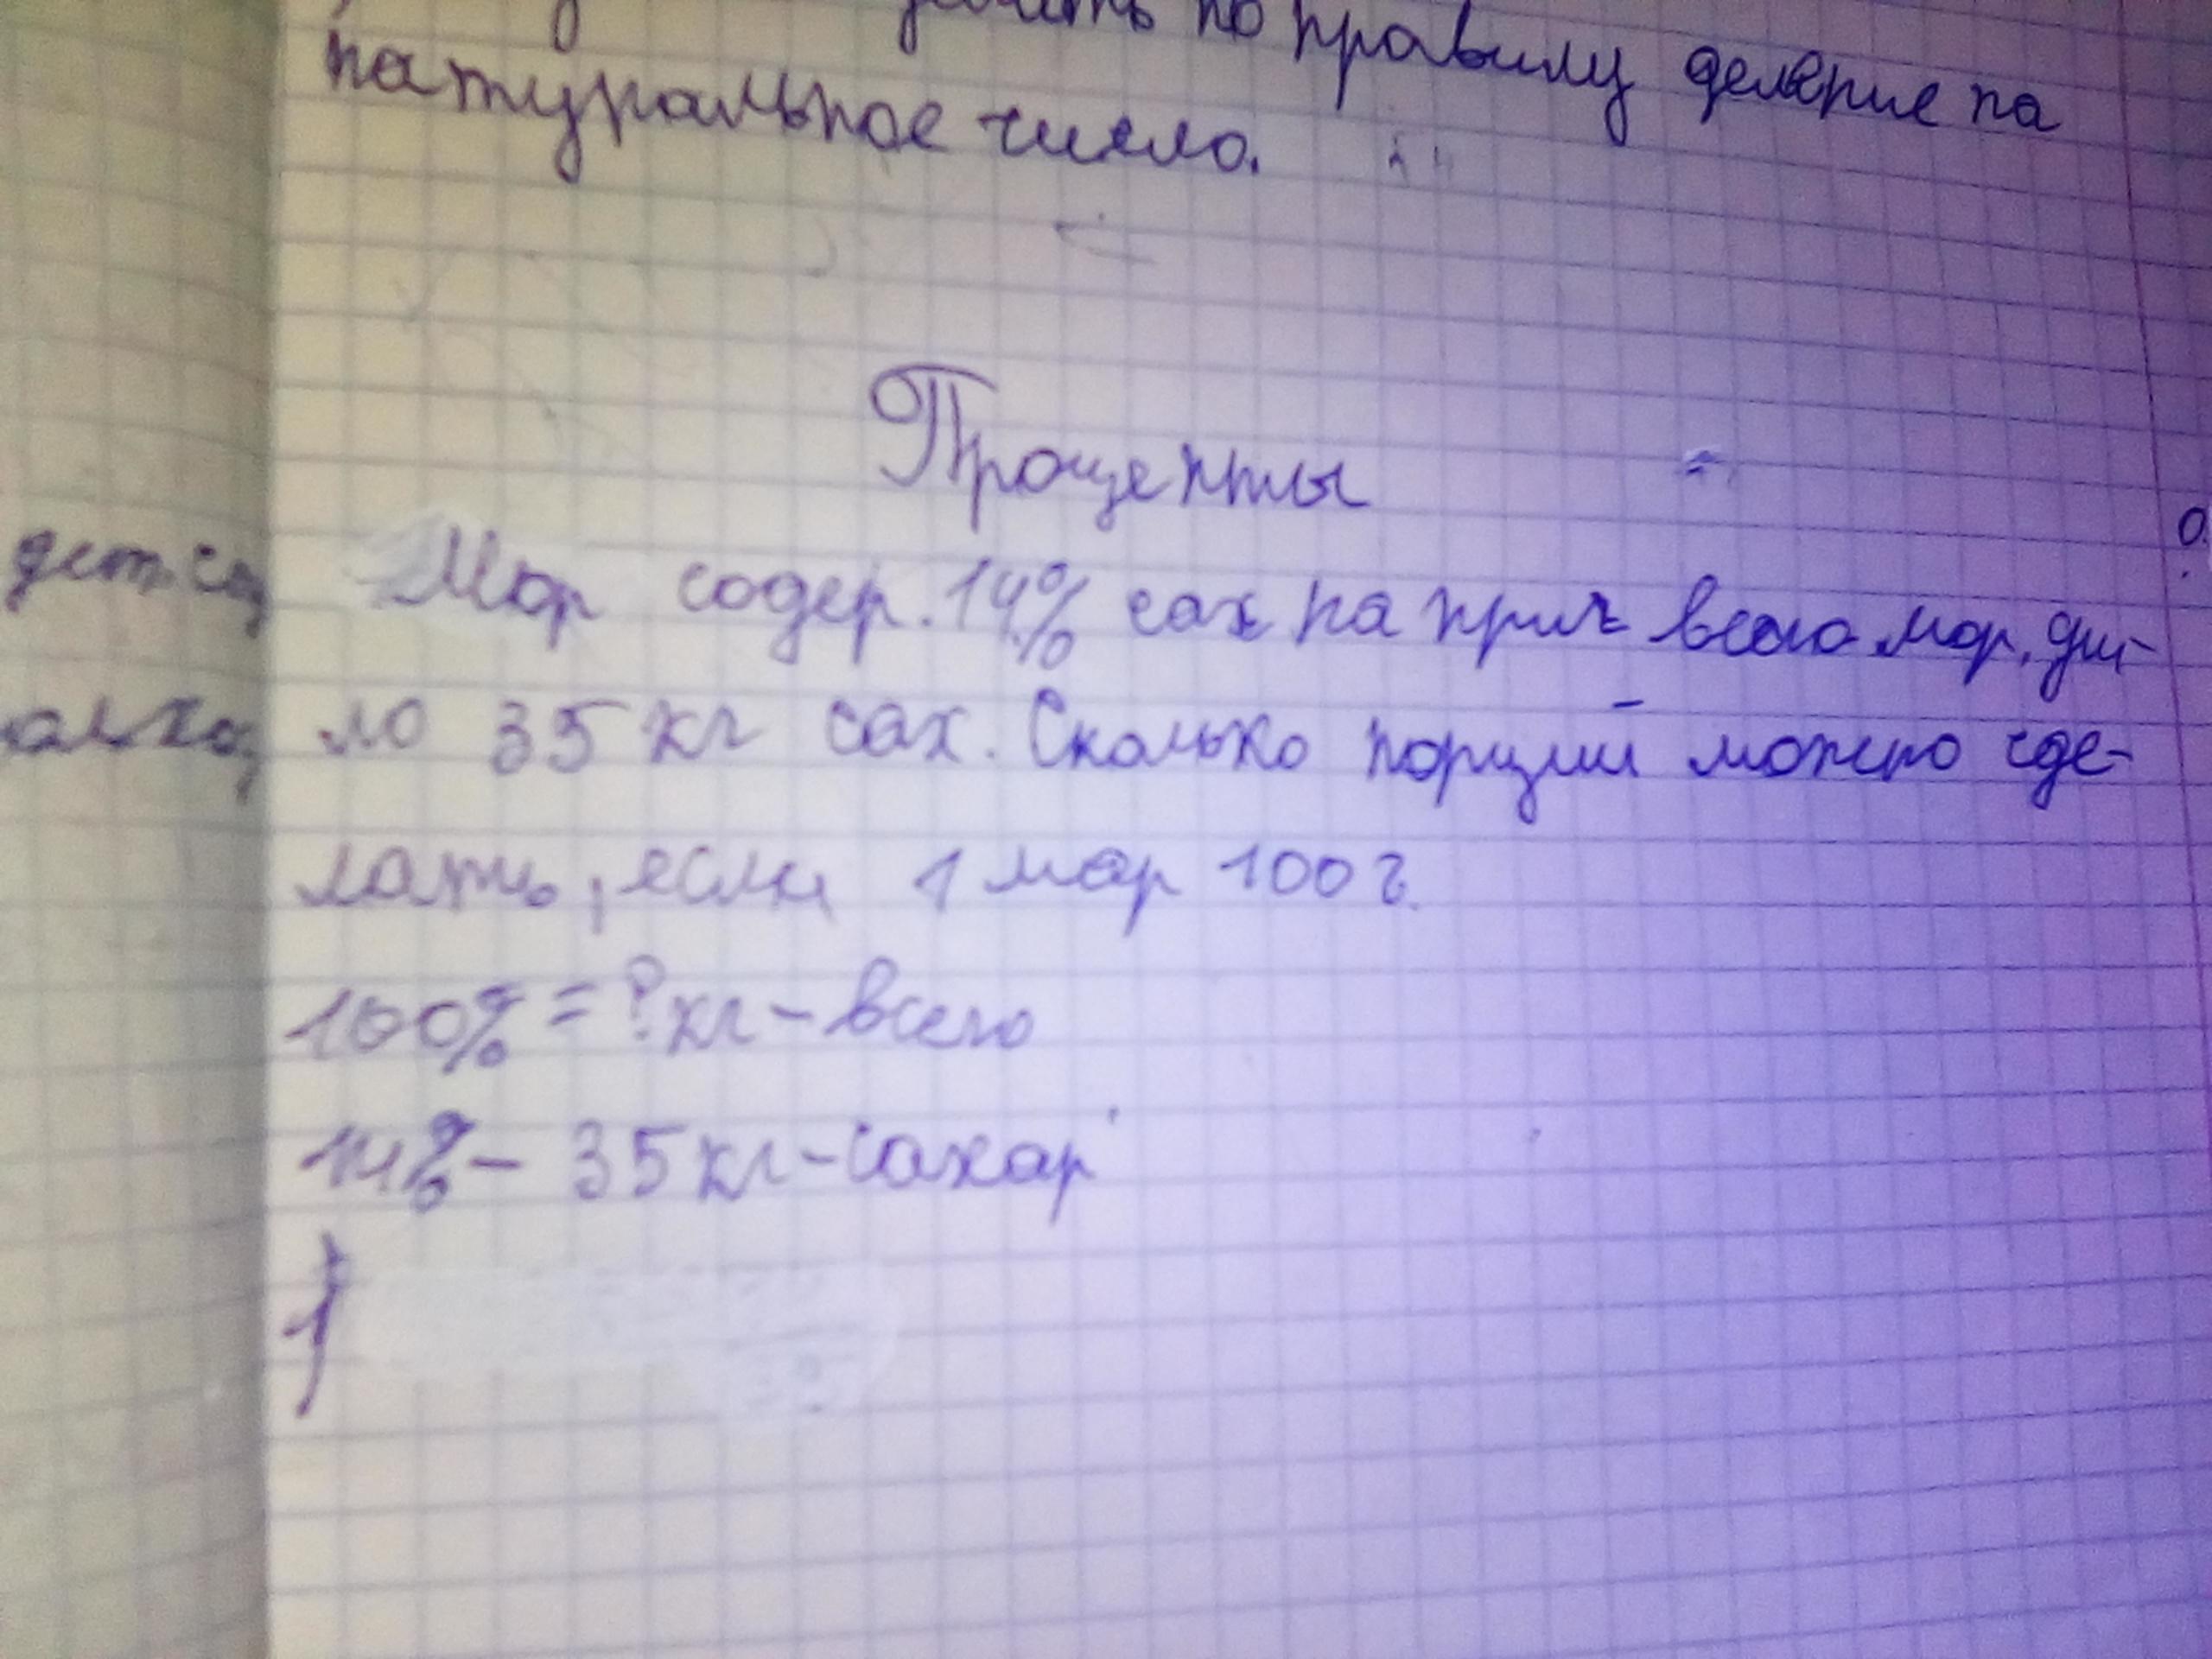 делить по правилу деление на
натуральное число.
Проценты
Мор содер. 14% сах на приг всего мор. ушло
ло 35 кг сах. Сколько порций можно сде-
лать, если 1 мор 100 г.
100% = ? кг - всего
14% - 35 кг - сахар
1)